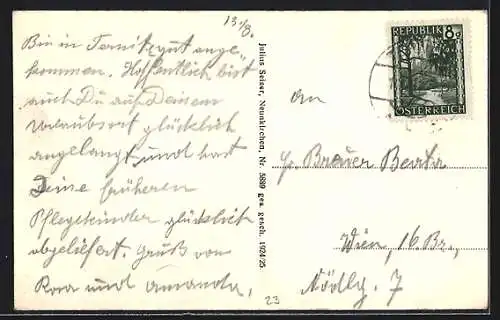 13./8.
Bin in Ternitz gut ange-
kommen. Hoffentlich bist
auch Du auf Deinem
Urlaubsort glücklich
angelangt und hast
Deine früheren
Pflegekinder glücklich
abgeliefert. Gruß von
Rosa und Amanda,
Julius Seiser, Neunkirchen, Nr. 5689 ges. gesch. 1924/25
23
REPUBLIK
8g
ÖSTERREICH
An
Brauer Berta
Wien, 16. Bz.,
7